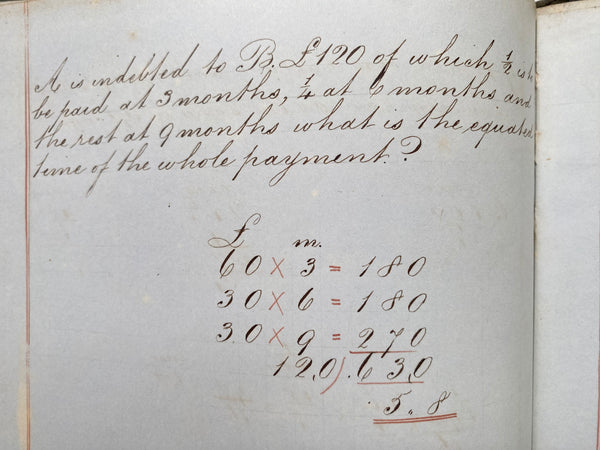 A is indebted to B. £120 of which ½ is t
be paid at 3 months, ¼ at 6 months and
the rest at 9 months what is the equated
time of the whole payment.?
£ m.
60 × 3 = 180
30 × 6 = 180
30 × 9 = 270
12,0).63,0
5„ 8